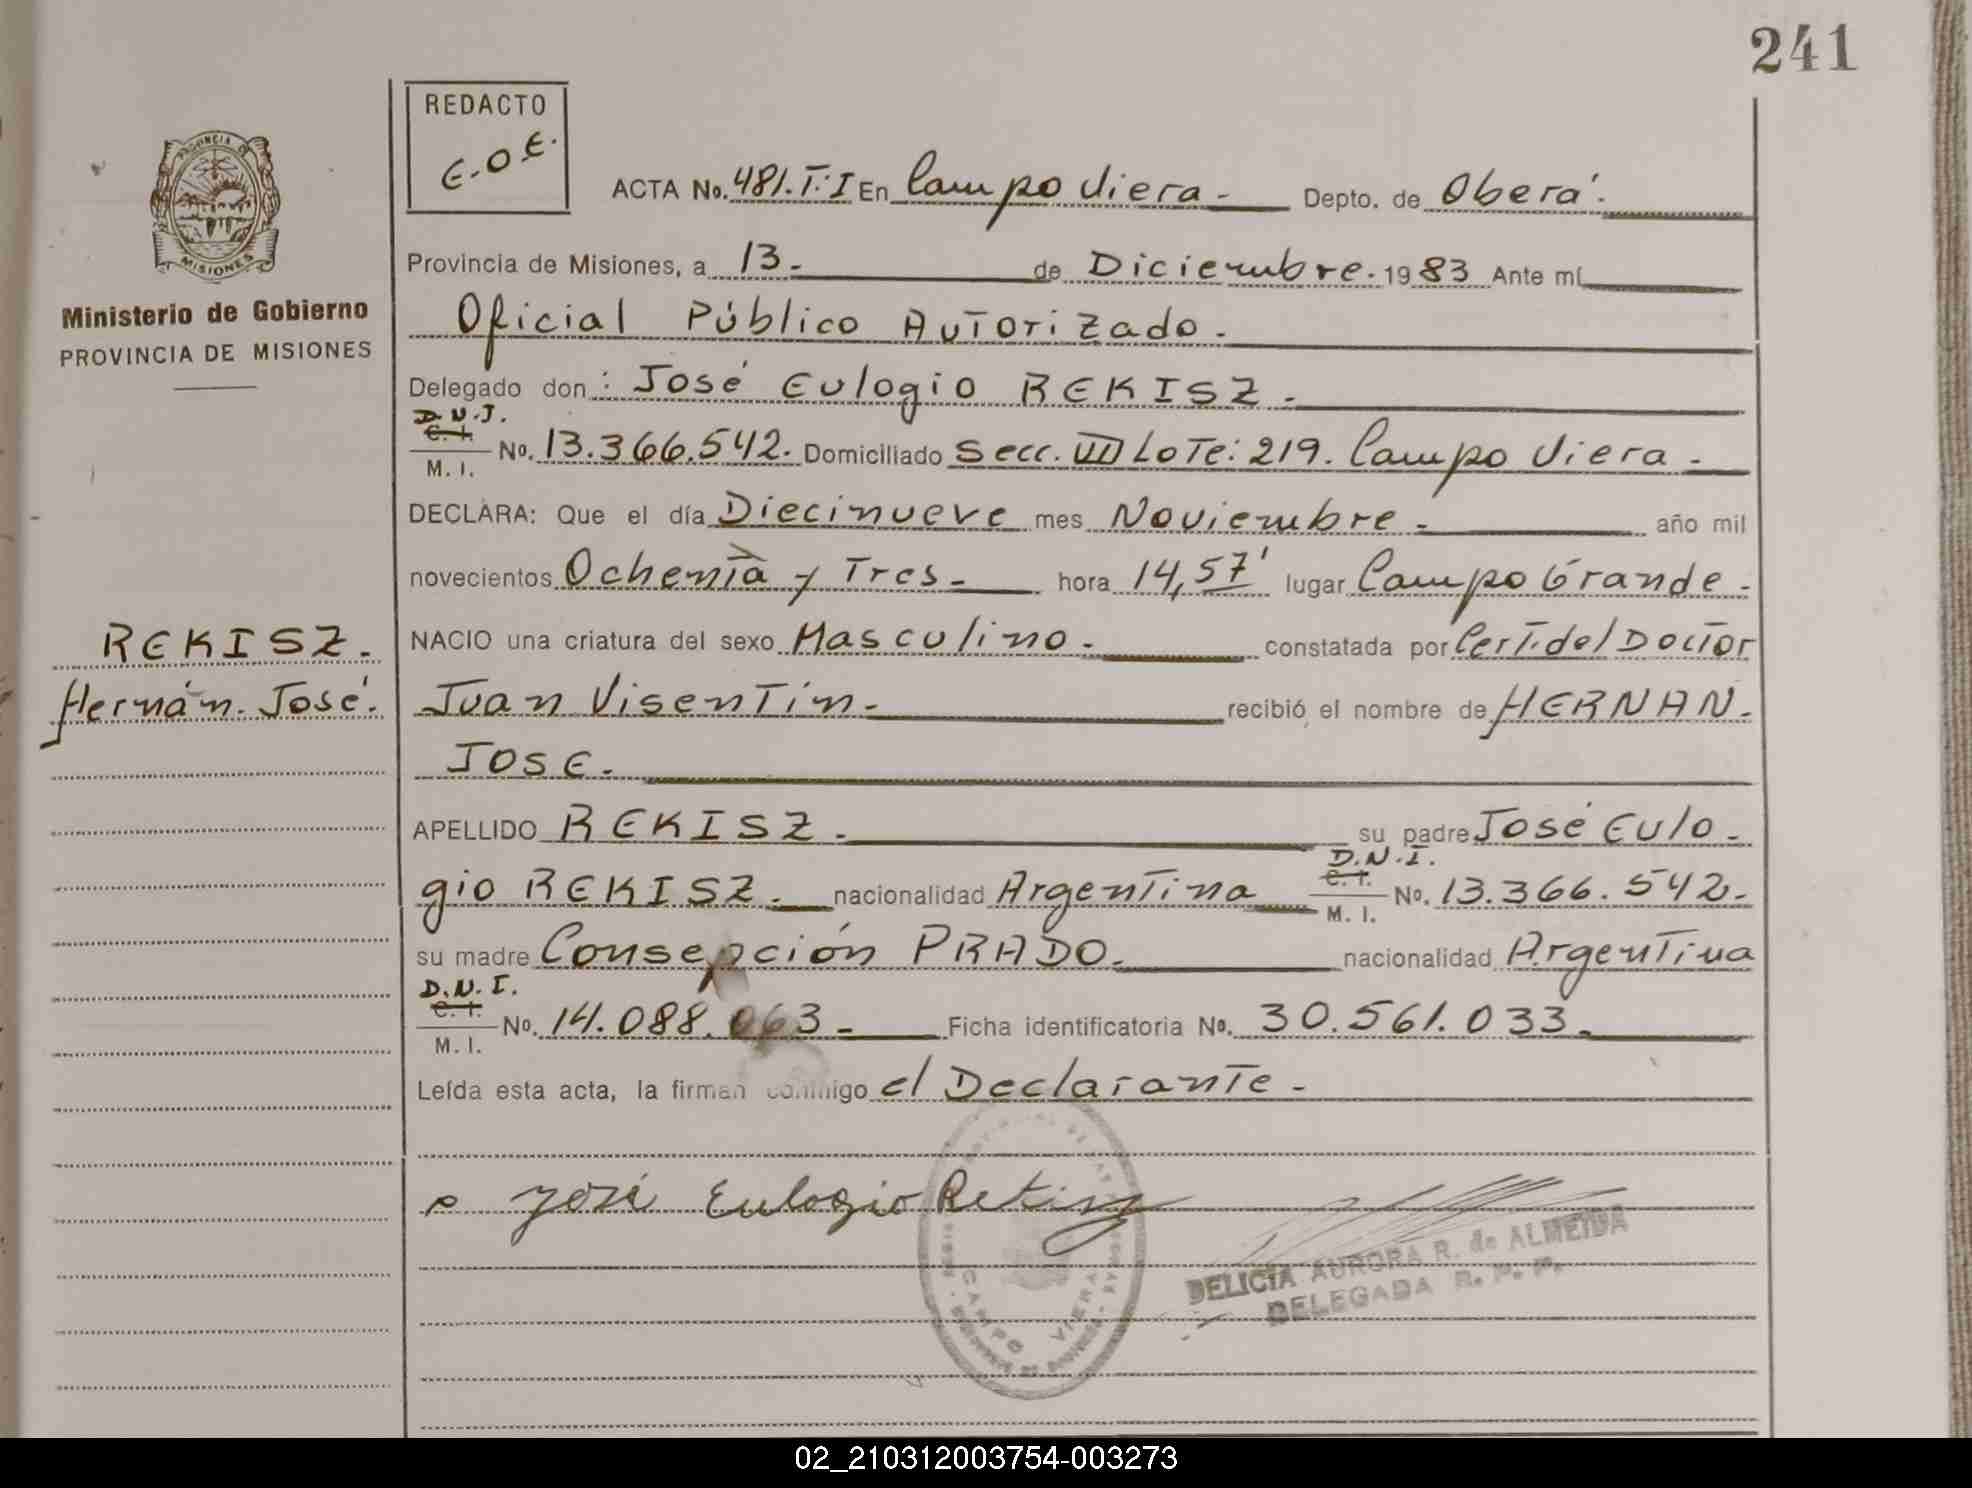 241
REDACTO
E.O.E.
PROVINCIA DE
MISIONES
Ministerio de Gobierno
PROVINCIA DE MISIONES
ACTA No. 481. T: I En Campo Viera - Depto. de Oberá.
Provincia de Misiones, a 13 - de Diciembre. 1983 Ante mí
Oficial Público Autorizado.
Delegado don: José Eulogio REKISZ.
D.N.I.
C. I.
M. I.
No. 13.366.542. Domiciliado Secc. VII Lote: 219. Campo Viera -
DECLARA: Que el día Diecinueve mes Noviembre - año mil
novecientos Ochenta y Tres - hora 14,57' lugar Campo Grande -
REKISZ.
Hernán. José.
NACIO una criatura del sexo Masculino - constatada por Cert. del Doctor
Juan Visentín - recibió el nombre de HERNAN.
JOSE.
APELLIDO REKISZ. su padre José Eulo-
D.N.I.
C. I.
M. I.
gio REKISZ. nacionalidad Argentina No. 13.366.542.
su madre Consepción PRADO. nacionalidad Argentina
D.N.I.
C. I.
M. I.
No. 14.088.063 - Ficha identificatoria No. 30.561.033.
Leída esta acta, la firman conmigo el Declarante -
José Eulogio Rekisz
DELICIA AURORA R. de ALMEIDA
DELEGADA R. P. P.
CAMPO VIERA
02_210312003754-003273